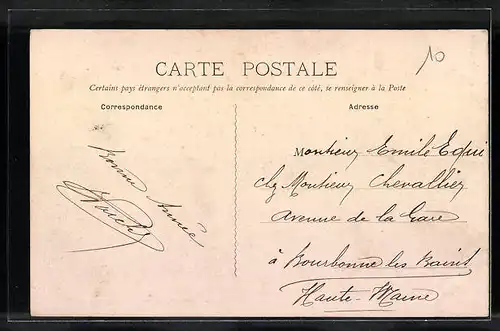 10
CARTE POSTALE
Certains pays étrangers n'acceptant pas la correspondance de ce côté, se renseigner à la Poste
Correspondance
Adresse
Bonne Année
Monsieur Emile Equi
chz Monsieur Chevallier
Avenue de la Gare
à Bourbonne les Bains
Haute-Marne